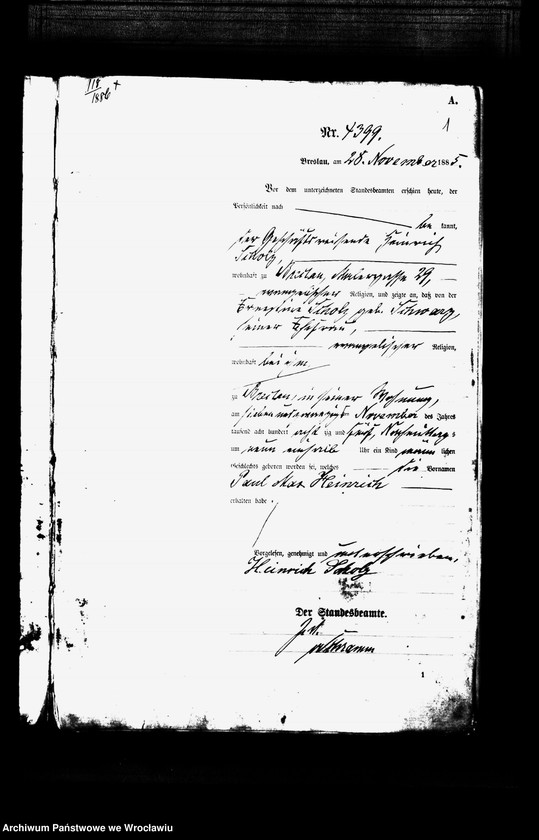 118
1886 +
A.
1
Nr. 4399.
Breslau, am 28. November 1885.
Vor dem unterzeichneten Standesbeamten erschien heute, der
Persönlichkeit nach
be kannt,
der Geschäftsreisende Heinrich
Scholz,
wohnhaft zu Breslau, Malergasse 29,
evangelischer Religion, und zeigte an, daß von der
Ernestine Scholz geb. Schwarz,
seiner Ehefrau,
evangelischer Religion,
wohnhaft bei ihm
zu Breslau, in seiner Wohnung,
am siebenundzwanzigsten November des Jahres
tausend acht hundert acht zig und fünf, Nachmittags
um neun einhalb Uhr ein Kind männ lichen
Geschlechts geboren worden sei, welches die Vornamen
Paul Max Heinrich
erhalten habe.
Vorgelesen, genehmigt und unterschrieben,
Heinrich Scholz
Der Standesbeamte.
1
Archiwum Państwowe we Wrocławiu